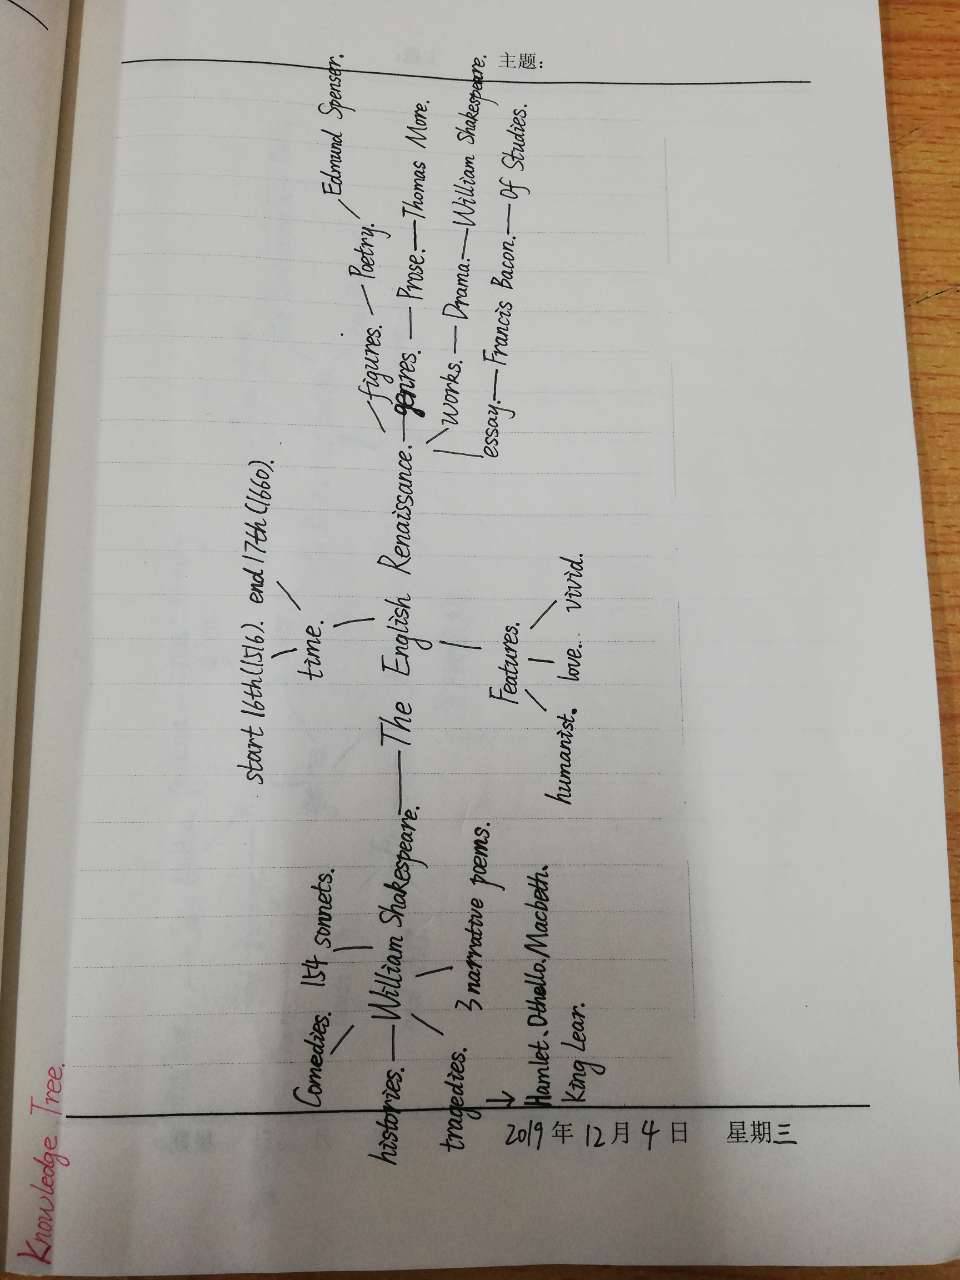 Knowledge Tree.
主题：
2019年12月4日 星期三
start 16th(1516). end 17th(1660).
time.
The English Renaissance.
figures.
genres.
works.
Poetry.
Edmund Spenser.
Prose.
Thomas More.
Drama.
William Shakespeare.
essay.
Francis Bacon.
Of Studies.
Features.
humanist.
love.
vivid.
William Shakespeare.
Comedies.
154 sonnets.
histories.
tragedies.
3 narrative poems.
Hamlet、Othello、Macbeth、
King Lear.